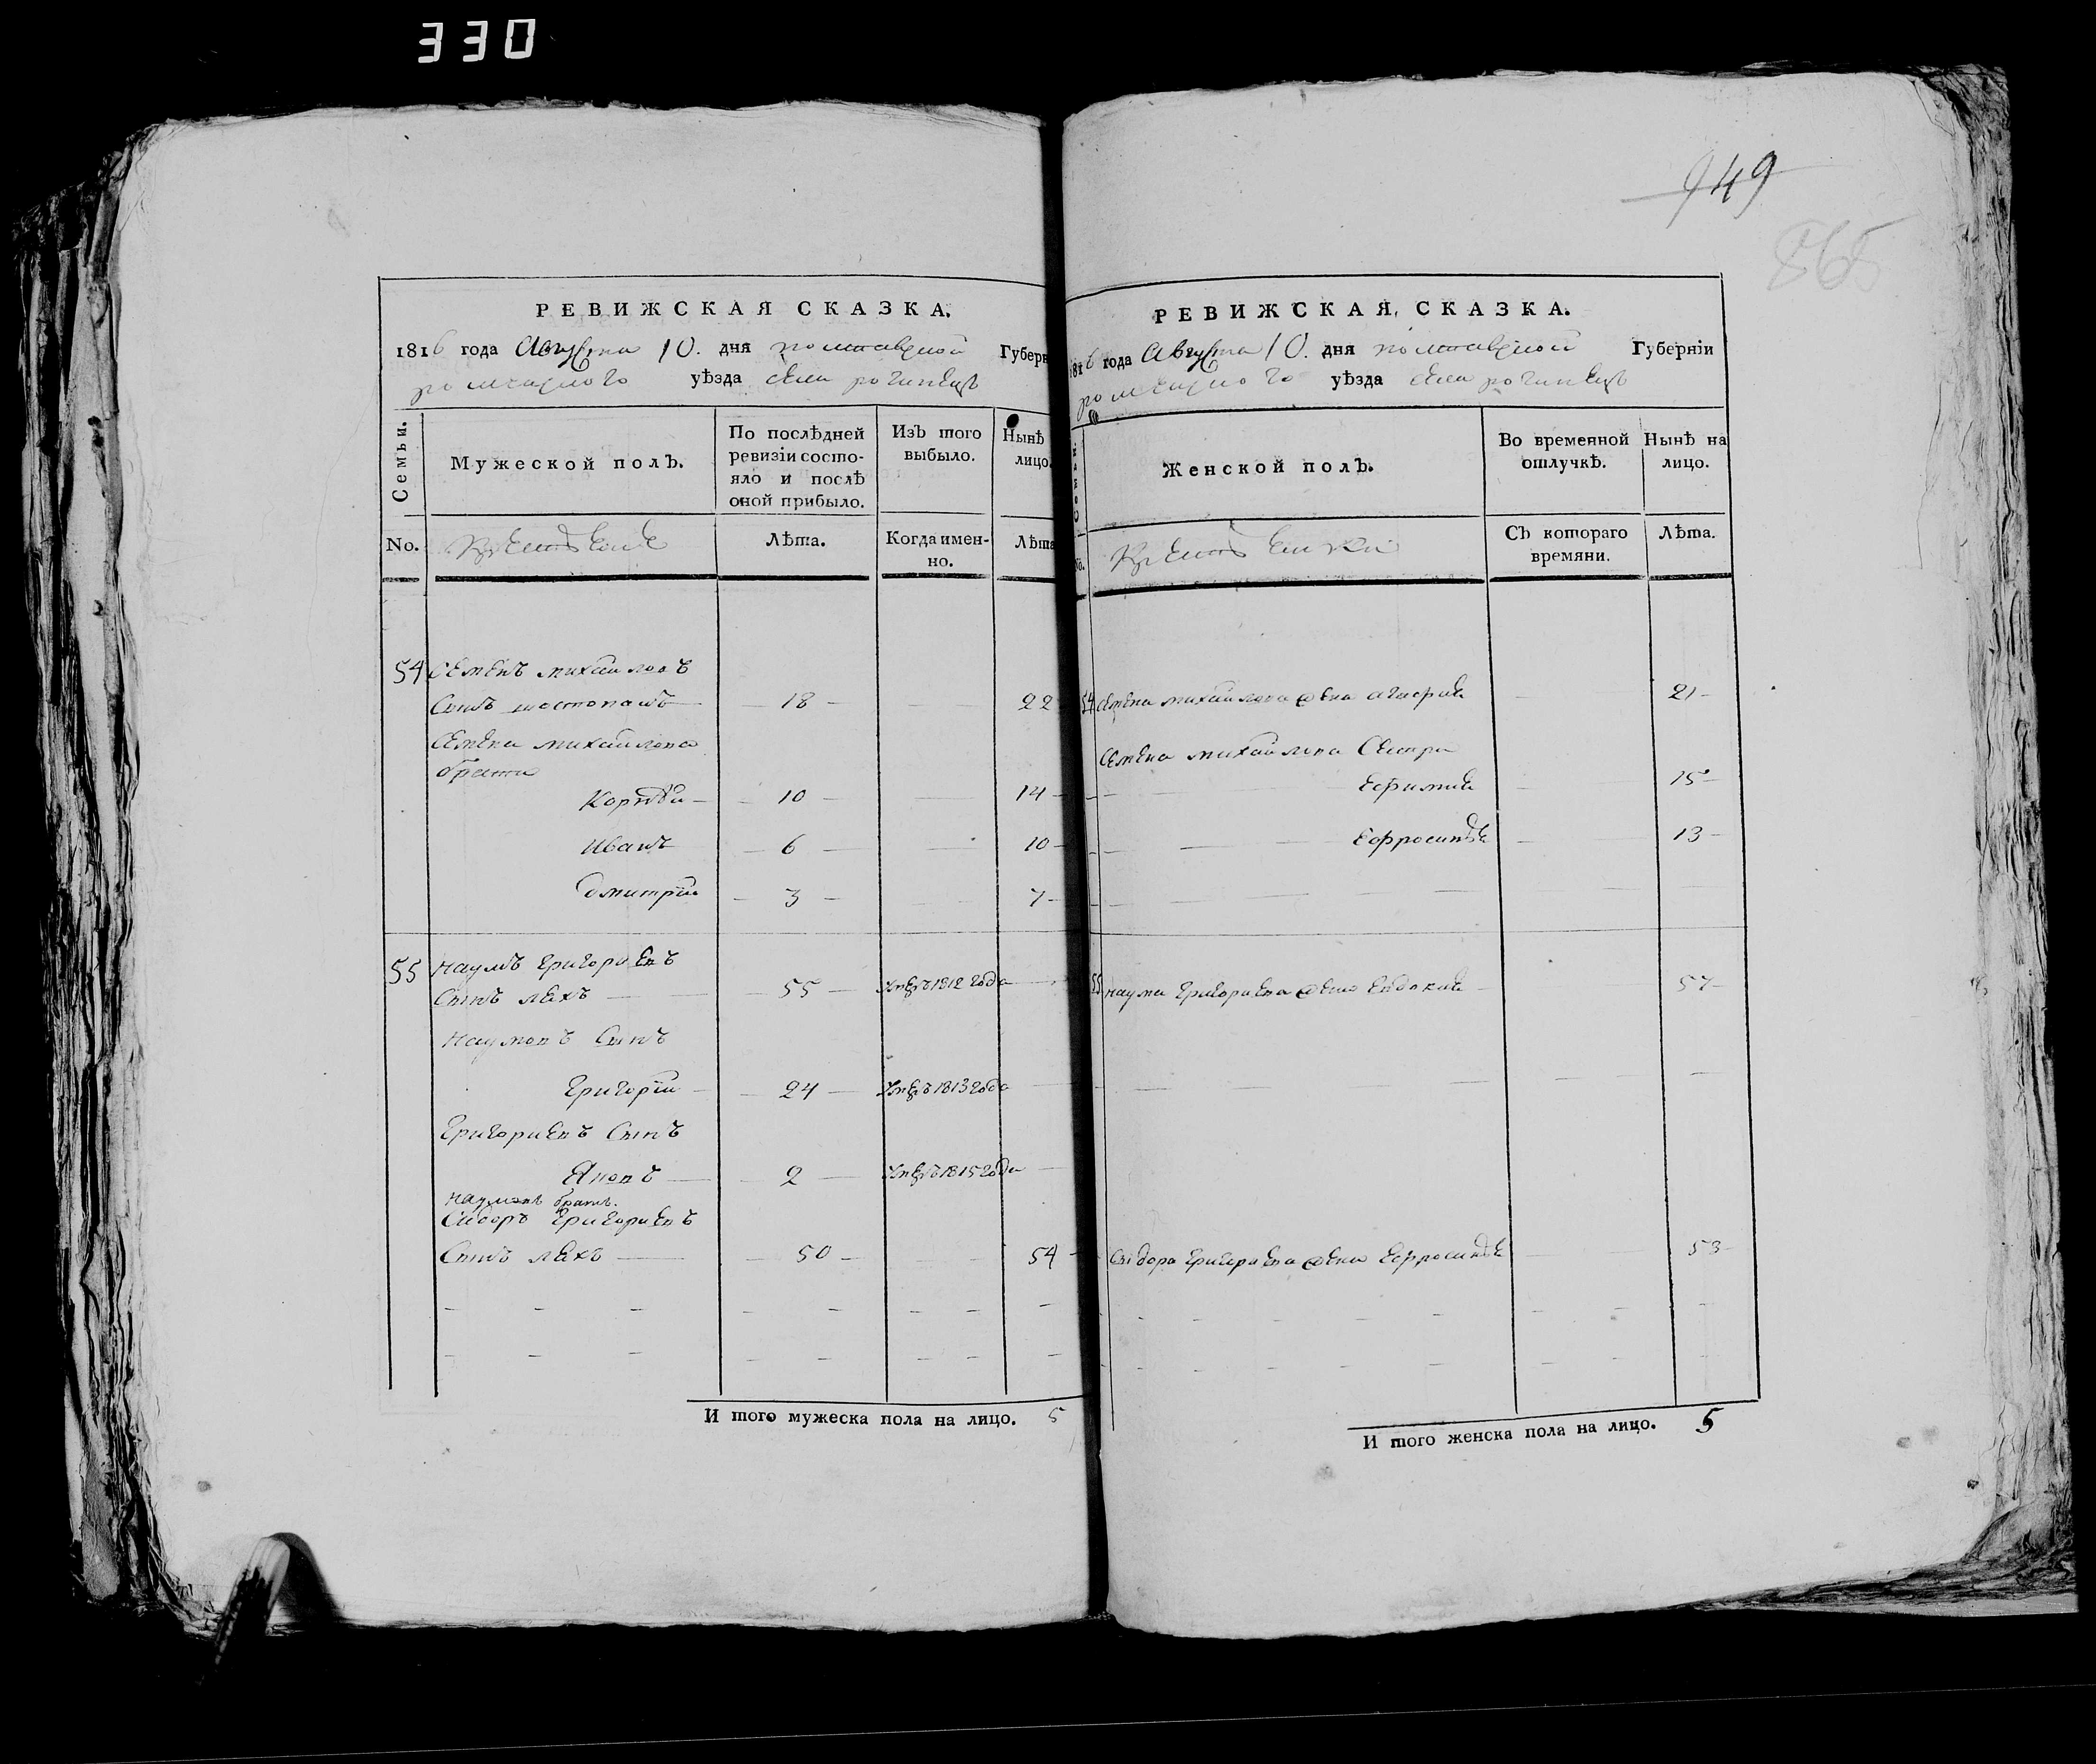 330
РЕВИЖСКАЯ СКАЗКА.
1816 года Августа 10. дня полтавской Губерн
роменского уѣзда села рогинецъ
Семьи.
Мужеской полъ.
По послѣдней ревизіи состояло и послѣ оной прибыло.
Изъ того выбыло.
Нынѣ лицо.
No.
Крестьяне
Лѣта.
Когда именно.
Лѣта
54 Семенъ михайловъ
Сынъ 18 22
Семена михайлова
брати
Корнѣй 10 14
Иванъ 6 10
Дмитрій 3 7
55 Наумъ Григориевъ
Сынъ лехъ 55 1812 года
Наумовъ Сынъ
Григорій 24 1813 года
Григориевъ Сынъ
2 1815 года
Наумовъ братъ
Сидоръ Григориевъ
Сынъ лехъ 50 54
И того мужеска пола на лицо. 5
949
865
РЕВИЖСКАЯ СКАЗКА.
1816 года Августа 10. дня полтавской Губерніи
роменского уѣзда села рогинецъ
Женской полъ.
Во временной отлучкѣ.
Нынѣ на лицо.
No.
Крестьянки
Съ котораго времяни.
Лѣта.
54 Семена михайлова жена 21
Семена михайлова Сестри
Ефимия 15
Ефросинѣя 13
55 Наума Григориева жена Евдокия 57
Сидора Григориева жена Ефросинѣя 53
И того женска пола на лицо. 5